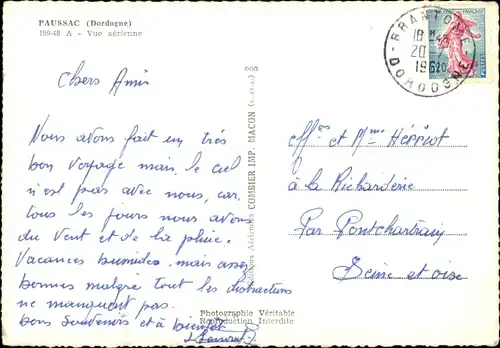 PAUSSAC (Dordogne)
199-48 A - Vue aérienne
BRANTOME
18H
20-7
1962
DORDOGNE
Chers Amis
Nous avons fait un très
bon voyage mais le ciel
n'est pas avec nous, car
tous les jours nous avons
du vent et de la pluie.
Vacances humides, mais assez
bonnes malgré tout les distractions
ne manquent pas.
bons souvenirs et à bientôt
Aériennes COMBIER IMP. MACON
Photographie Véritable
Reproduction Interdite
et Mme Hérriot
à la Richarderie
Par Pontchartrain
Seine et oise